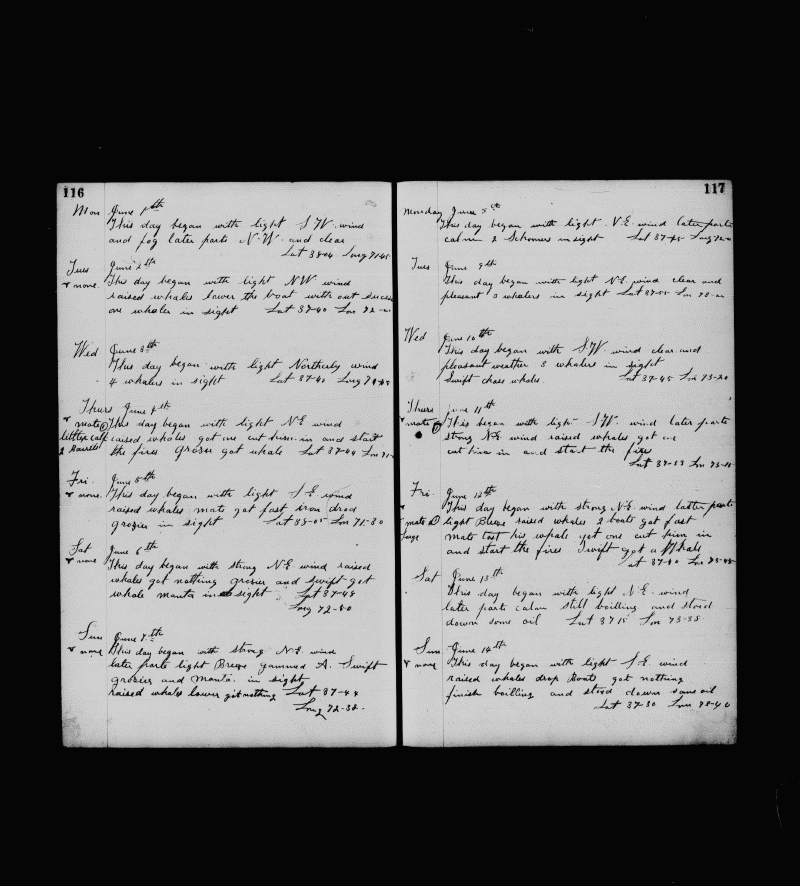 116
Mon June 1th
This day began with light S.W. wind
and fog later parts N-W- and clear
Lat 38-04 Long 71-45
Tues June 2th
none. This day began with light NW wind
raised whales lower the boat with out succes
one whaler in sight Lat 37-40 Lon 72-
Wed June 3th
This day began with light Northerly wind
4 whalers in sight Lat 37-41 Long
Thurs June 4th
mate This day began with light N.E. wind
little calf raised whales got one cut him in and start
2 Barrels the fires grosier got whale Lat 37-44 Lon 71-
Fri June 5th
none. This day began with light S.E. wind
raised whales mate got fast iron drod
grosier in sight Lat 38-05 Lon 71-30
Sat June 6th
none This day began with strong N.E. wind raised
whales got nothing grosier and Swift got
whale manta in sight Lat 37-48
Long 72-50
Sun June 7th
none This day began with strong N.E. wind
later parts light Breeze gammed A. Swift
grosier and Manta. in sight
raised whales lower got nothing Lat 37-44
Long 72-32-
117
Monday June 8th
This day began with light N.E. wind later parts
calm 2 Schooners in sight Lat 37-45 Long 72-
Tues June 9th
This day began with light N.E. wind clear and
pleasant 3 whalers in sight Lat 37-55 Lon 72-
Wed June 10th
This day began with S.W. wind clear and
pleasant weather 3 whalers in sight
Swift chase whales Lat 37-45 Lon 73-20
Thurs June 11th
mate This began with light S.W. wind later parts
strong N.E. wind raised whales got one
cut him in and start the fires
Lat 37-33 Lon 73-
Fri. June 12th
This day began with strong N.E. wind latter parts
mate light Breeze raised whales 2 boats got fast
large mate lost his whale got one cut him in
and start the fires Swift got a Whale
Lat 37- Lon 73-
Sat June 13th
This day began with light N.E. wind
later parts calm still boilling and stood
down some oil Lat 37 15 Lon 73-35
Sun June 14th
none This day began with light S.E. wind
raised whales drop Boats got nothing
finish boilling and stood down some oil
Lat 37-30 Lon 73-40